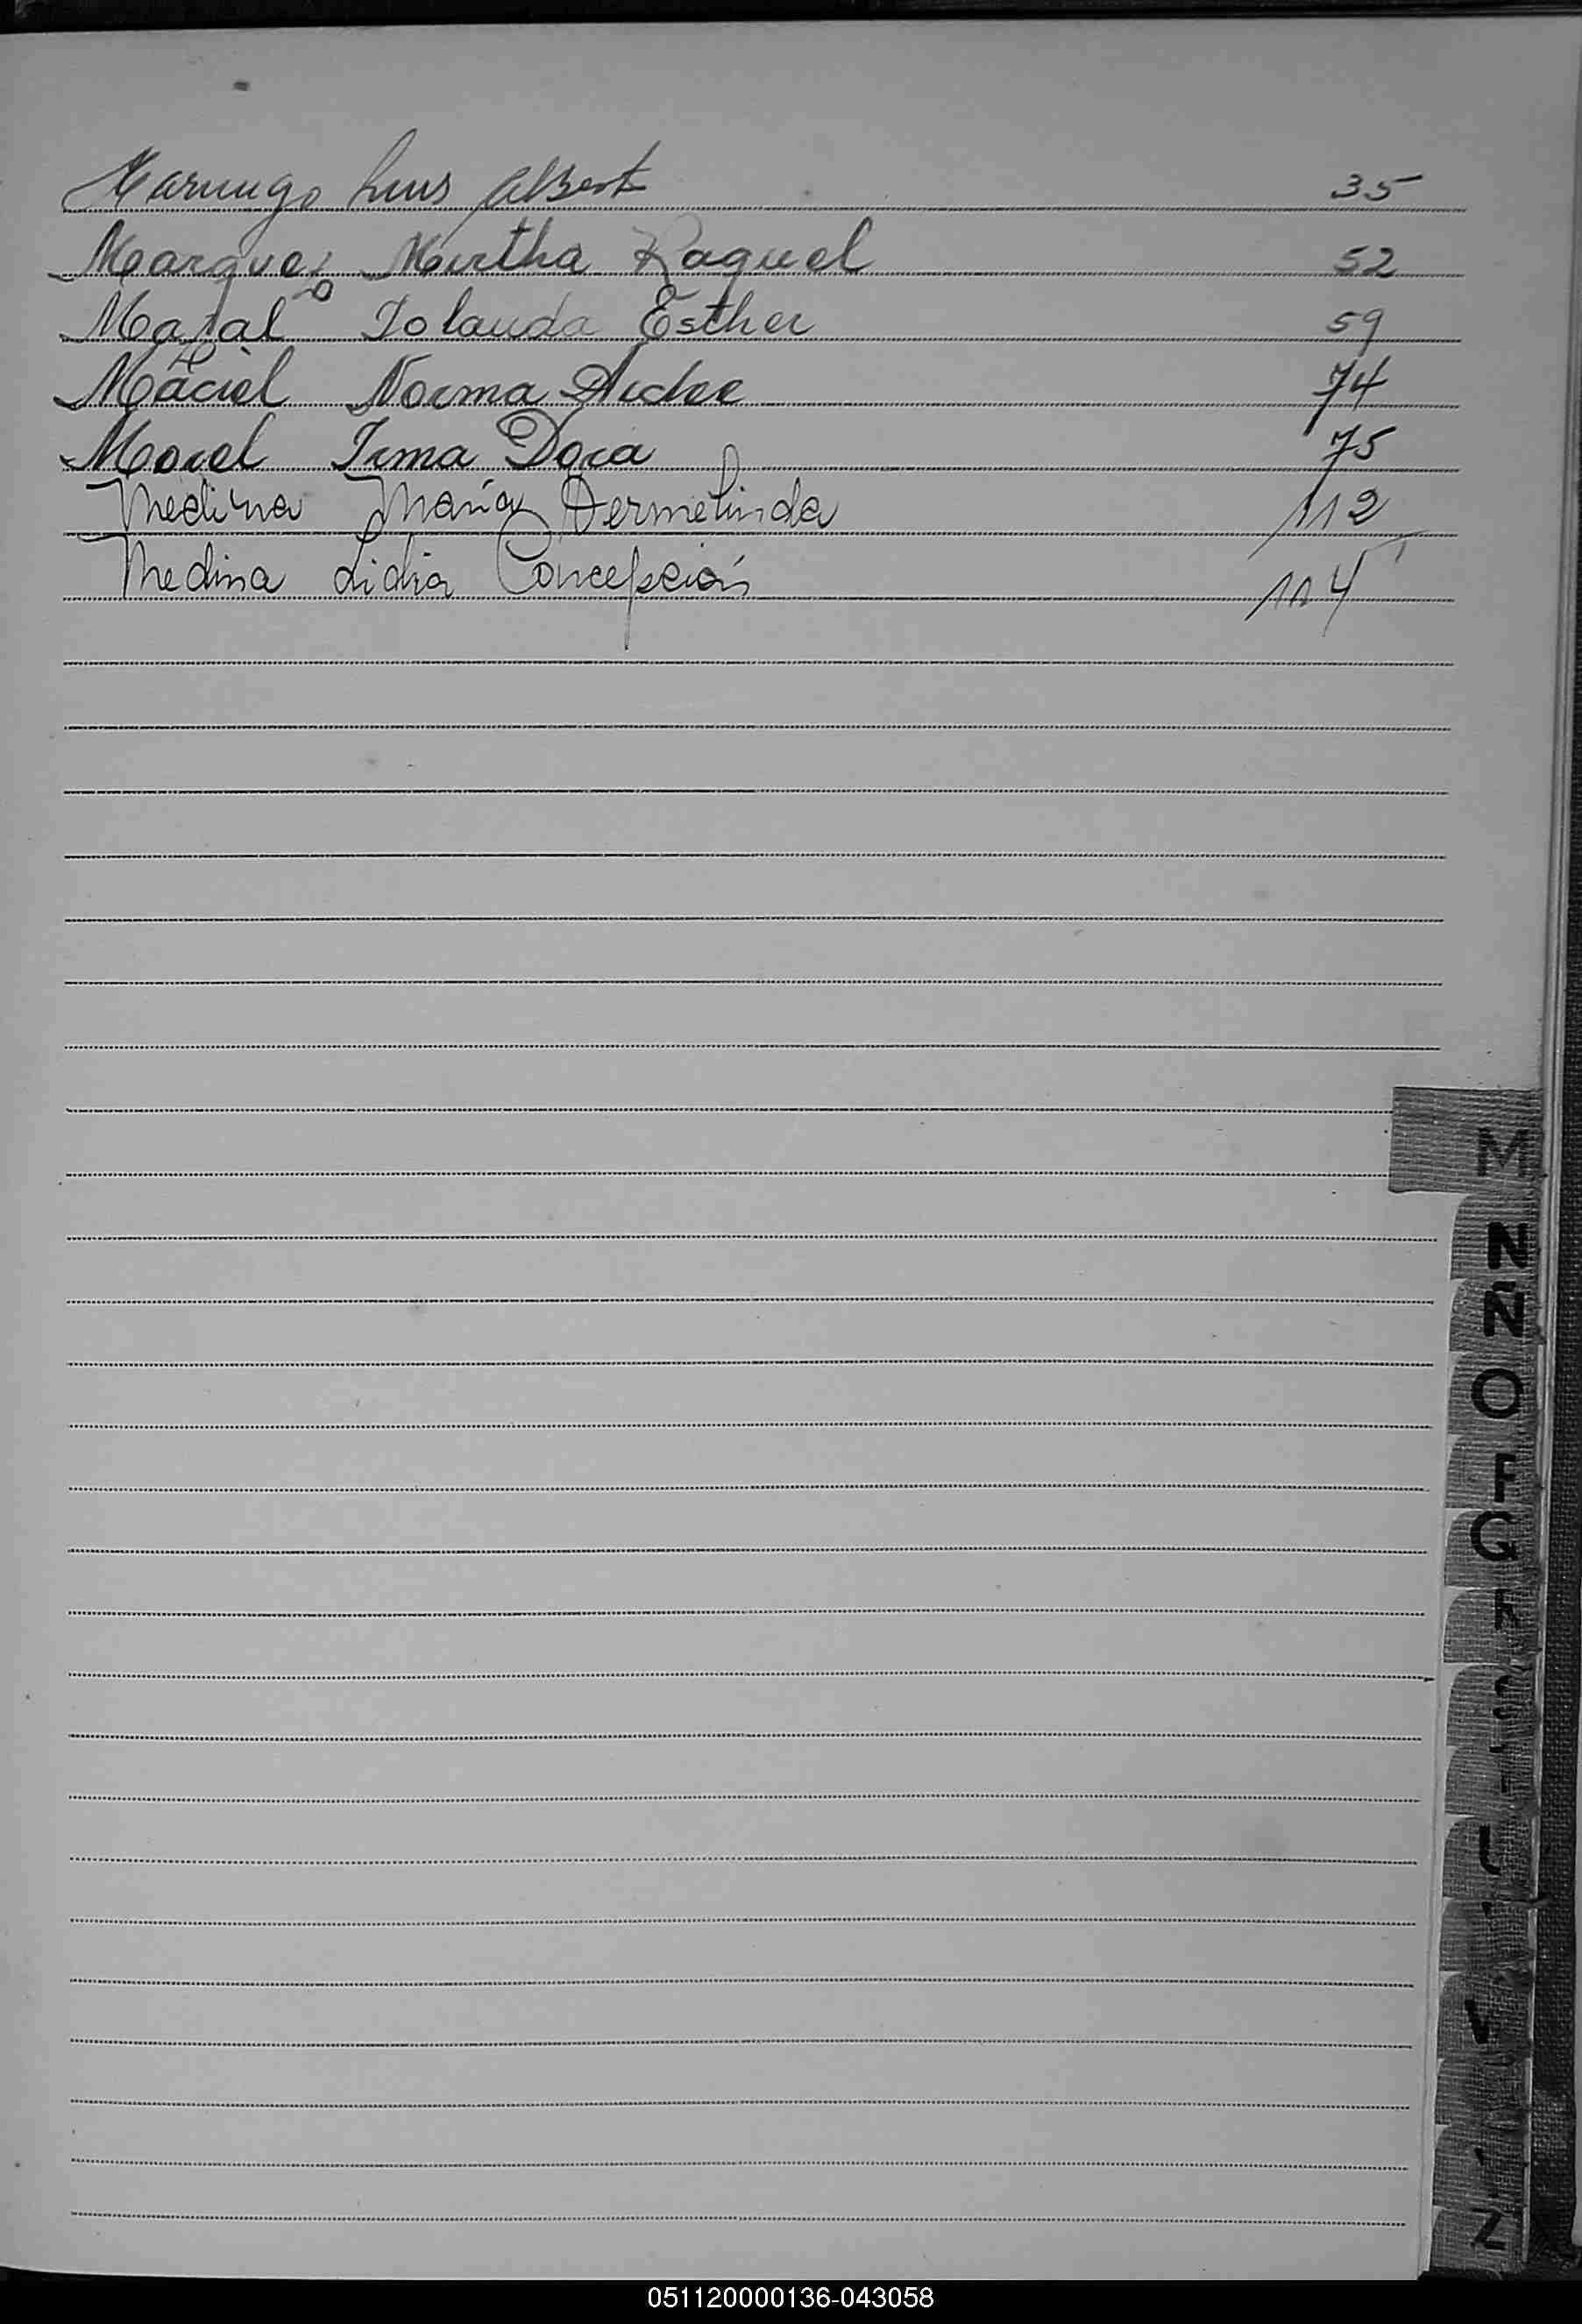 Marengo Luis Albert 35
Marquez Mirtha Raquel 52
Iolanda Esther 59
Maciel Norma Aidee 74
Morel Irma Dora 75
Medina María Dermelinda 112
Medina Lidia Concepción 114
M
N
Ñ
O
P
Q
R
Z
051120000136-043058